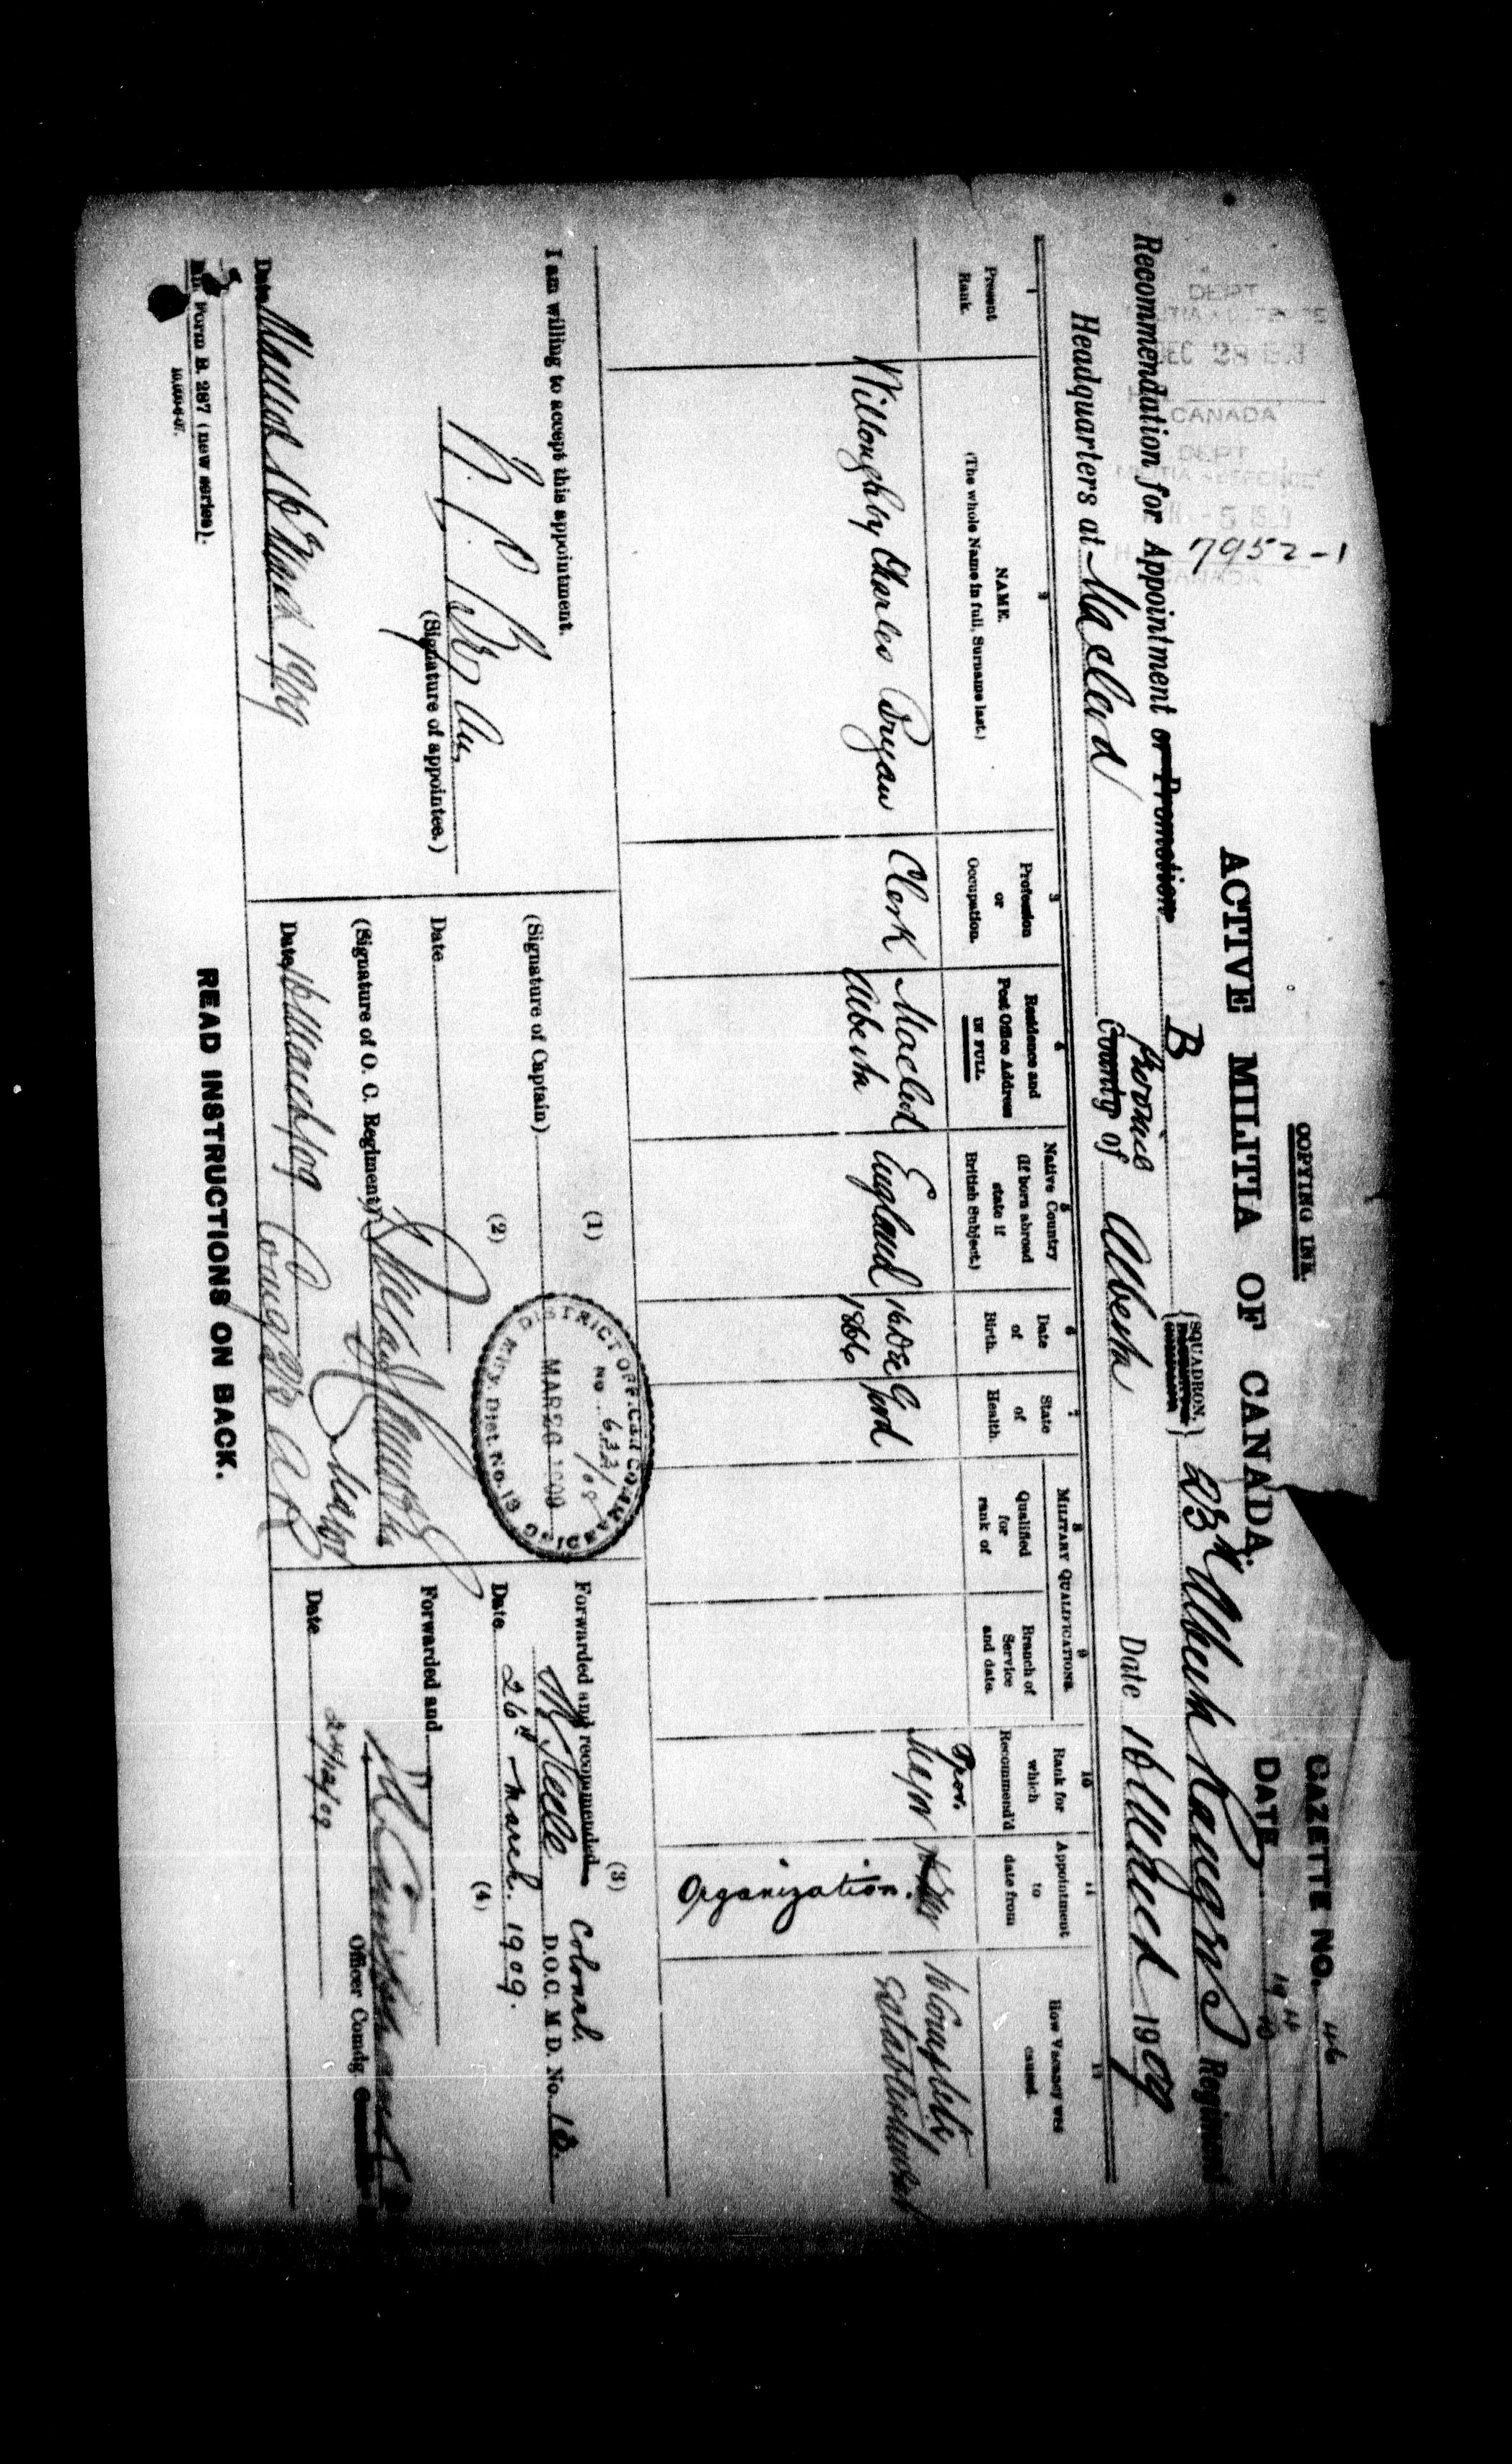 COPYING INK.
GAZETTE NO. 46
DATE
ACTIVE MILITIA OF CANADA.
DEPT
DEC 28
CANADA
DEPT
7952-1
CANADA
Recommendation for Appointment or Promotion B { SQUADRON, } 23rd Alberta Rangers Regiment
Headquarters at Macleod County Province of Alberta Date 16 March 1909
1 2 3 4 5 6 7 8 9 10 11 12
Present Rank.
NAME.
(The whole Name in full, Surname last.)
Profession or Occupation.
Residence and Post Office Address IN FULL.
Native Country (If born abroad state if British Subject.)
Date of Birth.
State of Health.
MILITARY QUALIFICATIONS.
Qualified for rank of
Branch of Service and date.
Rank for which Recommend'd
Appointment to date from
How Vacancy was caused.
Willoughby Charles Bryan
Clerk
Macleod Alberta
England
16 Dec 1866
Good
Prov. Major
Organization.
To Complete Establishment
I am willing to accept this appointment.
W. C. Bryan
(Signature of appointee.)
Date Macleod 16th March 1909
(1)
(Signature of Captain)
Date
(2)
(Signature of O. C. Regiment)
Major
Date 16 March/09
DISTRICT OFFICER COMMANDING
No 633/09
MAR 26 1909
Mility. Dist. No. 13
(3)
Forwarded and recommended
Colonel.
Steele D.O.C. M D. No. 13.
Date 26th March. 1909.
(4)
Forwarded and
Officer Comdg
Date 24/12/09
Min. Form B. 287 (new series).
10,000-6-07.
READ INSTRUCTIONS ON BACK.